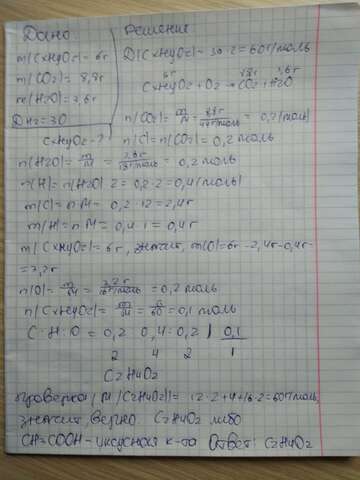 Дано:
m(CxHyOz)= 6г
m(CO2)= 8,8г
m(H2O)= 3,6г
DH2=30
CxHyOz-?
Решение
D(CxHyOz)= 30·2=60г/моль
6г 8,8г 3,6г
CxHyOz+O2→CO2+H2O
n(CO2)= m/M = 8,8г/44г/моль = 0,2(моль)
n(C)=n(CO2)= 0,2 моль
n(H2O)= m/M = 3,6г/18г/моль = 0,2 моль
n(H)= n(H2O)·2= 0,2·2= 0,4(моль)
m(C)= n·M= 0,2·12= 2,4г
m(H)= n·M= 0,4·1= 0,4г
m(CxHyOz)= 6г, значит, m(O)=6г-2,4г-0,4г=
=3,2г
n(O)= m/M = 3,2г/16г/моль = 0,2 моль
n(CxHyOz)= m/M = 6/60 = 0,1 моль
C:H:O = 0,2 0,4:0,2 | 0,1
2 4 2 1
C2H4O2
Проверка(M(C2H4O2))= 12·2+4+16·2=60г/моль,
значит, верно. C2H4O2 либо
CH3COOH-уксусная к-та Ответ: C2H4O2